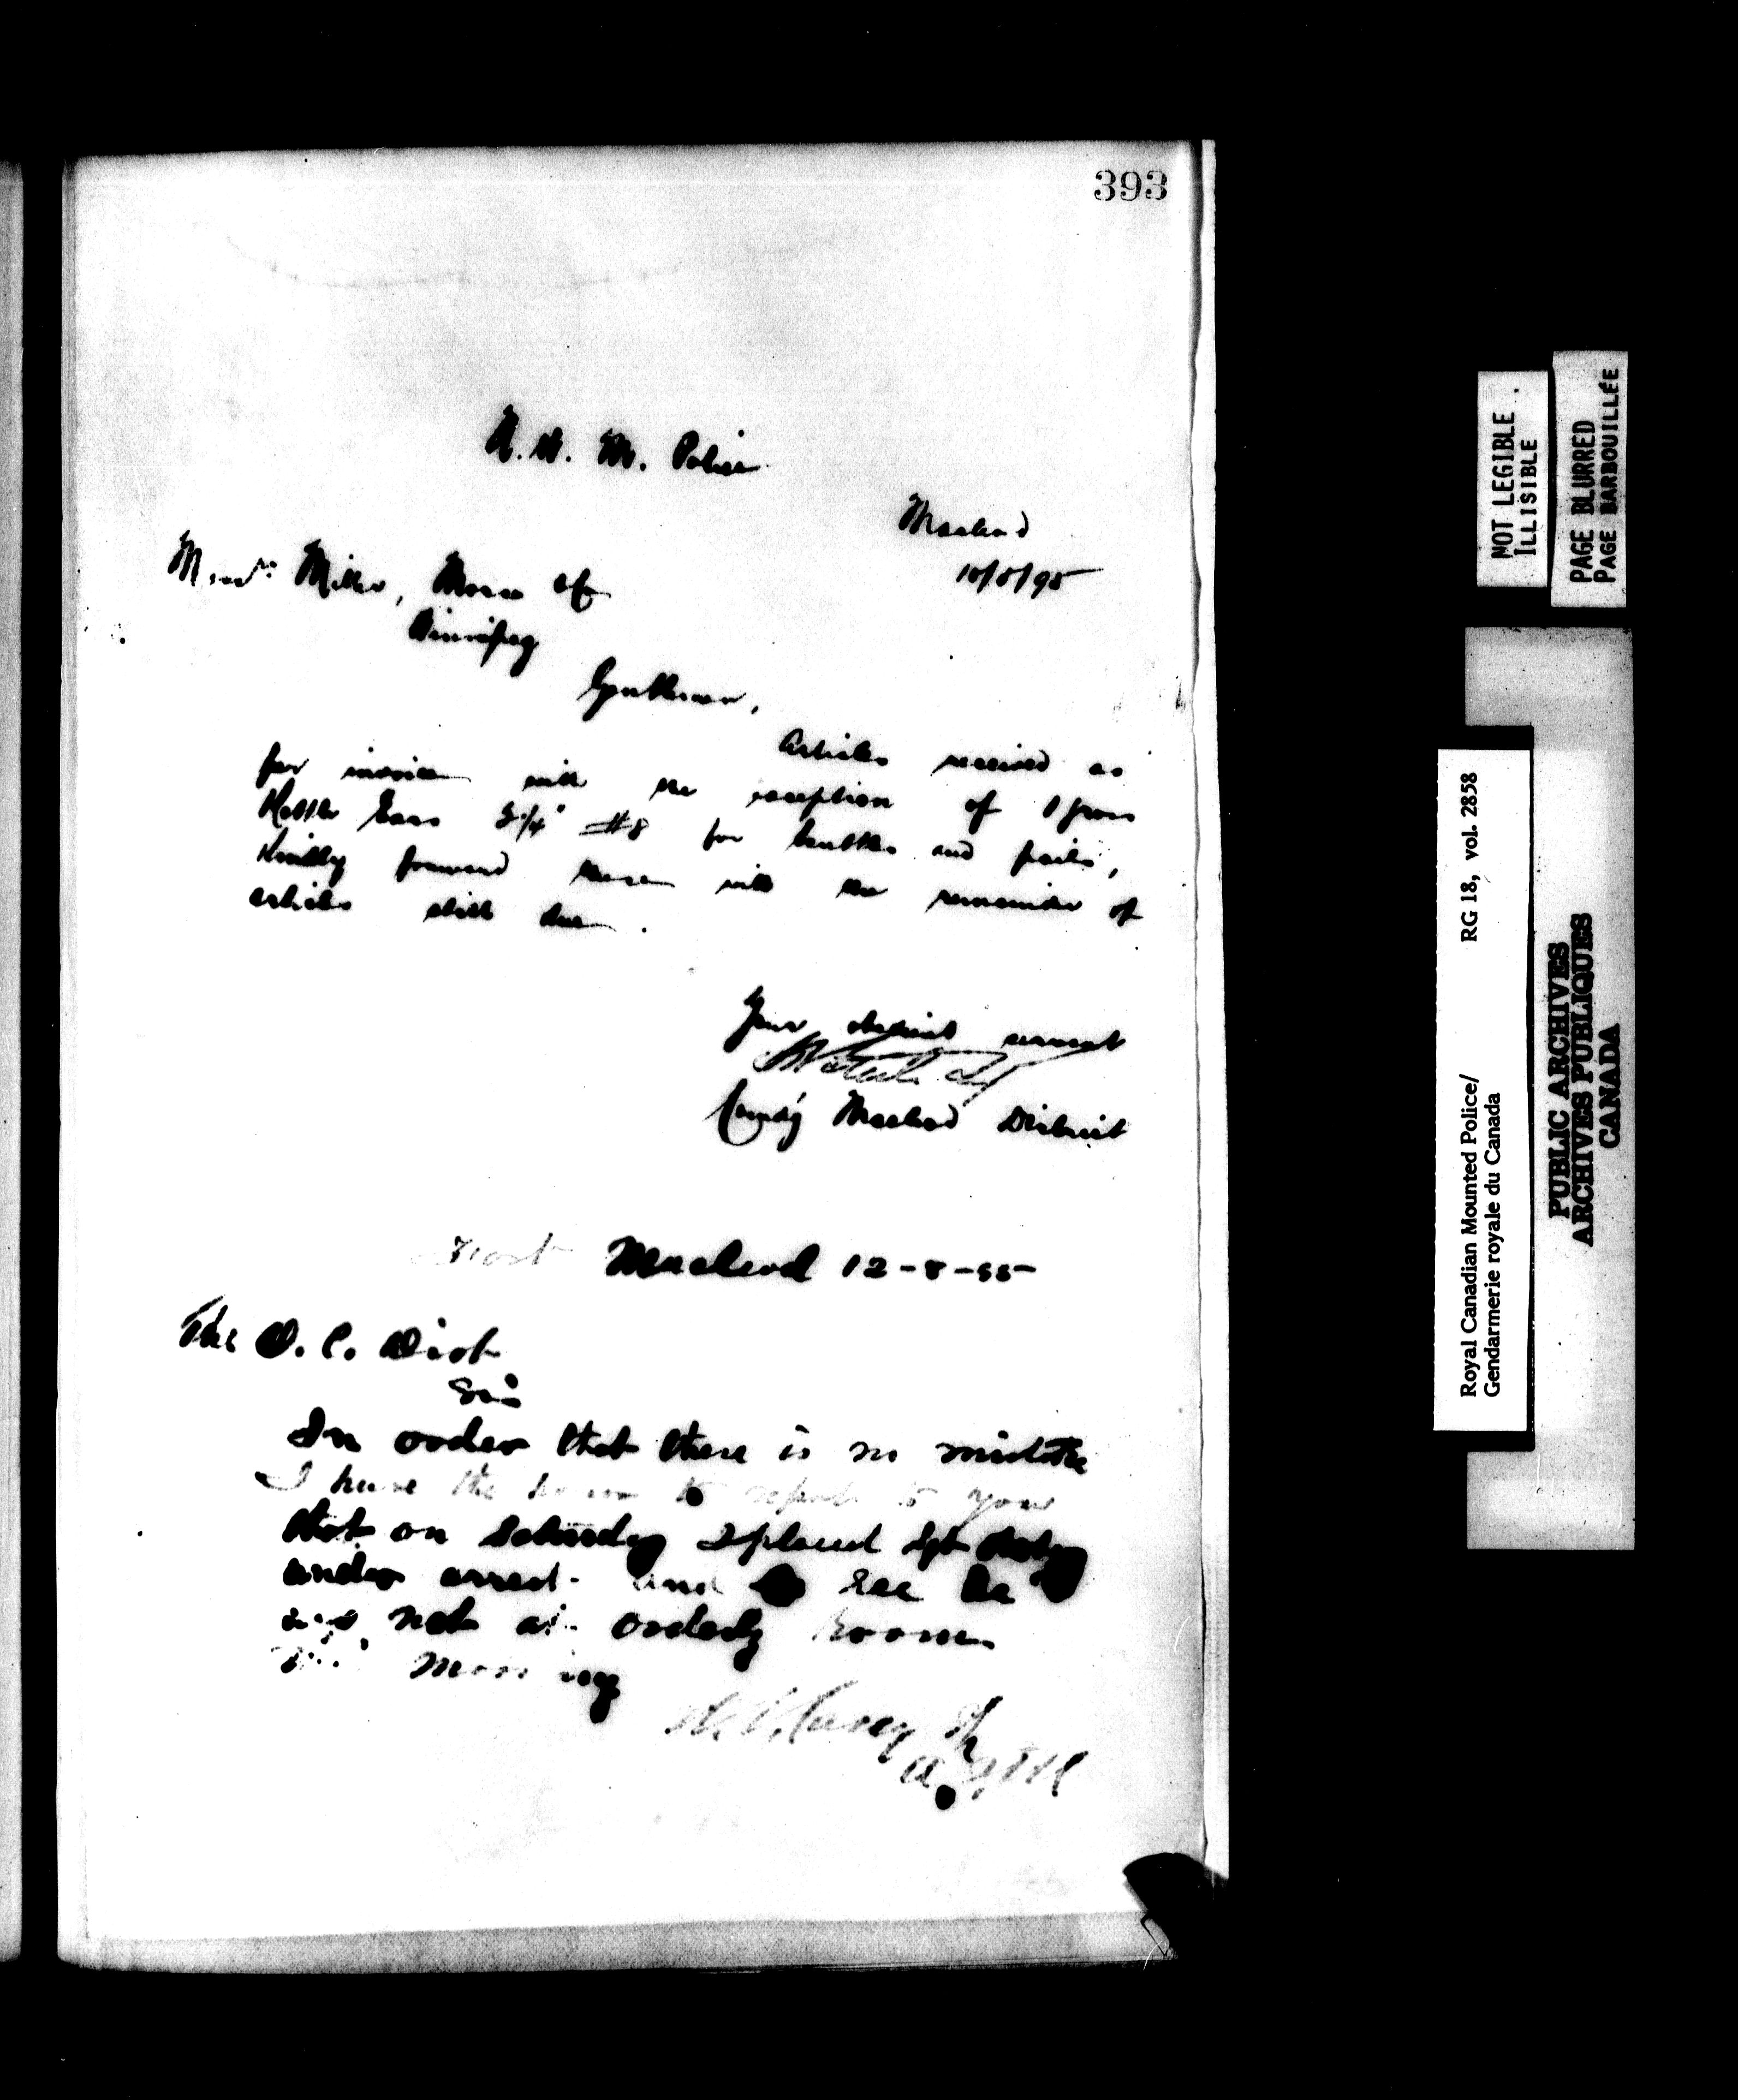 393
N. W. M. Police
Macleod
10/8/95
Messrs. Miller, Morse &
Winnipeg
Gentlemen,
Articles received as
per invoice with the exception of 1 gross
Kettle Ears 5 1/4" #8 for kettles and pails,
Kindly forward these with the remainder of
articles still due.
Your obedient servant
Comdg Macleod District
Fort Macleod 12-8-95
The O. C. Dist
Sir
In order that there is no mistake
I have the honor to report to you
that on Saturday I placed Sgt
under arrest and see he
was not at orderly room
This morning
NOT LEGIBLE
ILLISIBLE
PAGE BLURRED
PAGE BARBOUILLÉE
Royal Canadian Mounted Police/ RG 18, vol. 2858
Gendarmerie royale du Canada
PUBLIC ARCHIVES
ARCHIVES PUBLIQUES
CANADA